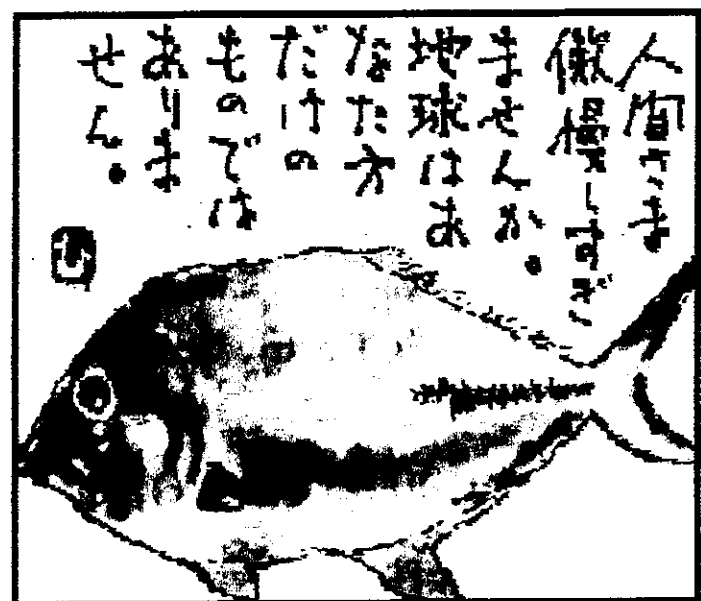 人間さま
傲慢しすぎ
ませんか。
地球はあ
なた方
だけの
ものでは
ありま
せん。